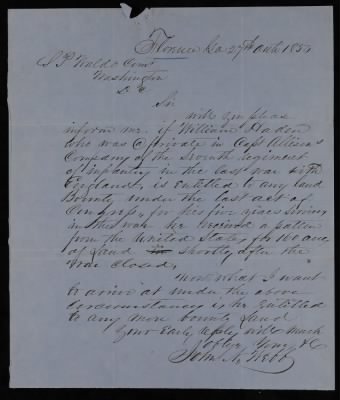 Florence Ga 27th Octb 1854
L P Waldo Comr
Washington
D C
Sir
will you please
inform me if William Haden
who was a private in Capt Allisons
Company of the Seventh Regiment
of infantry in the last war with
England, is entitled to any land
Bounty under the last act of
Congress, for his five years service
in that war he received a patten
from the United States for 160 acres
of Land shortly after the
war closed,
Now what I want
to arive at under the above
circumstances is he entitled
to any more bounty Land
Your Early reply will much
oblige Yours &C
John A Webb